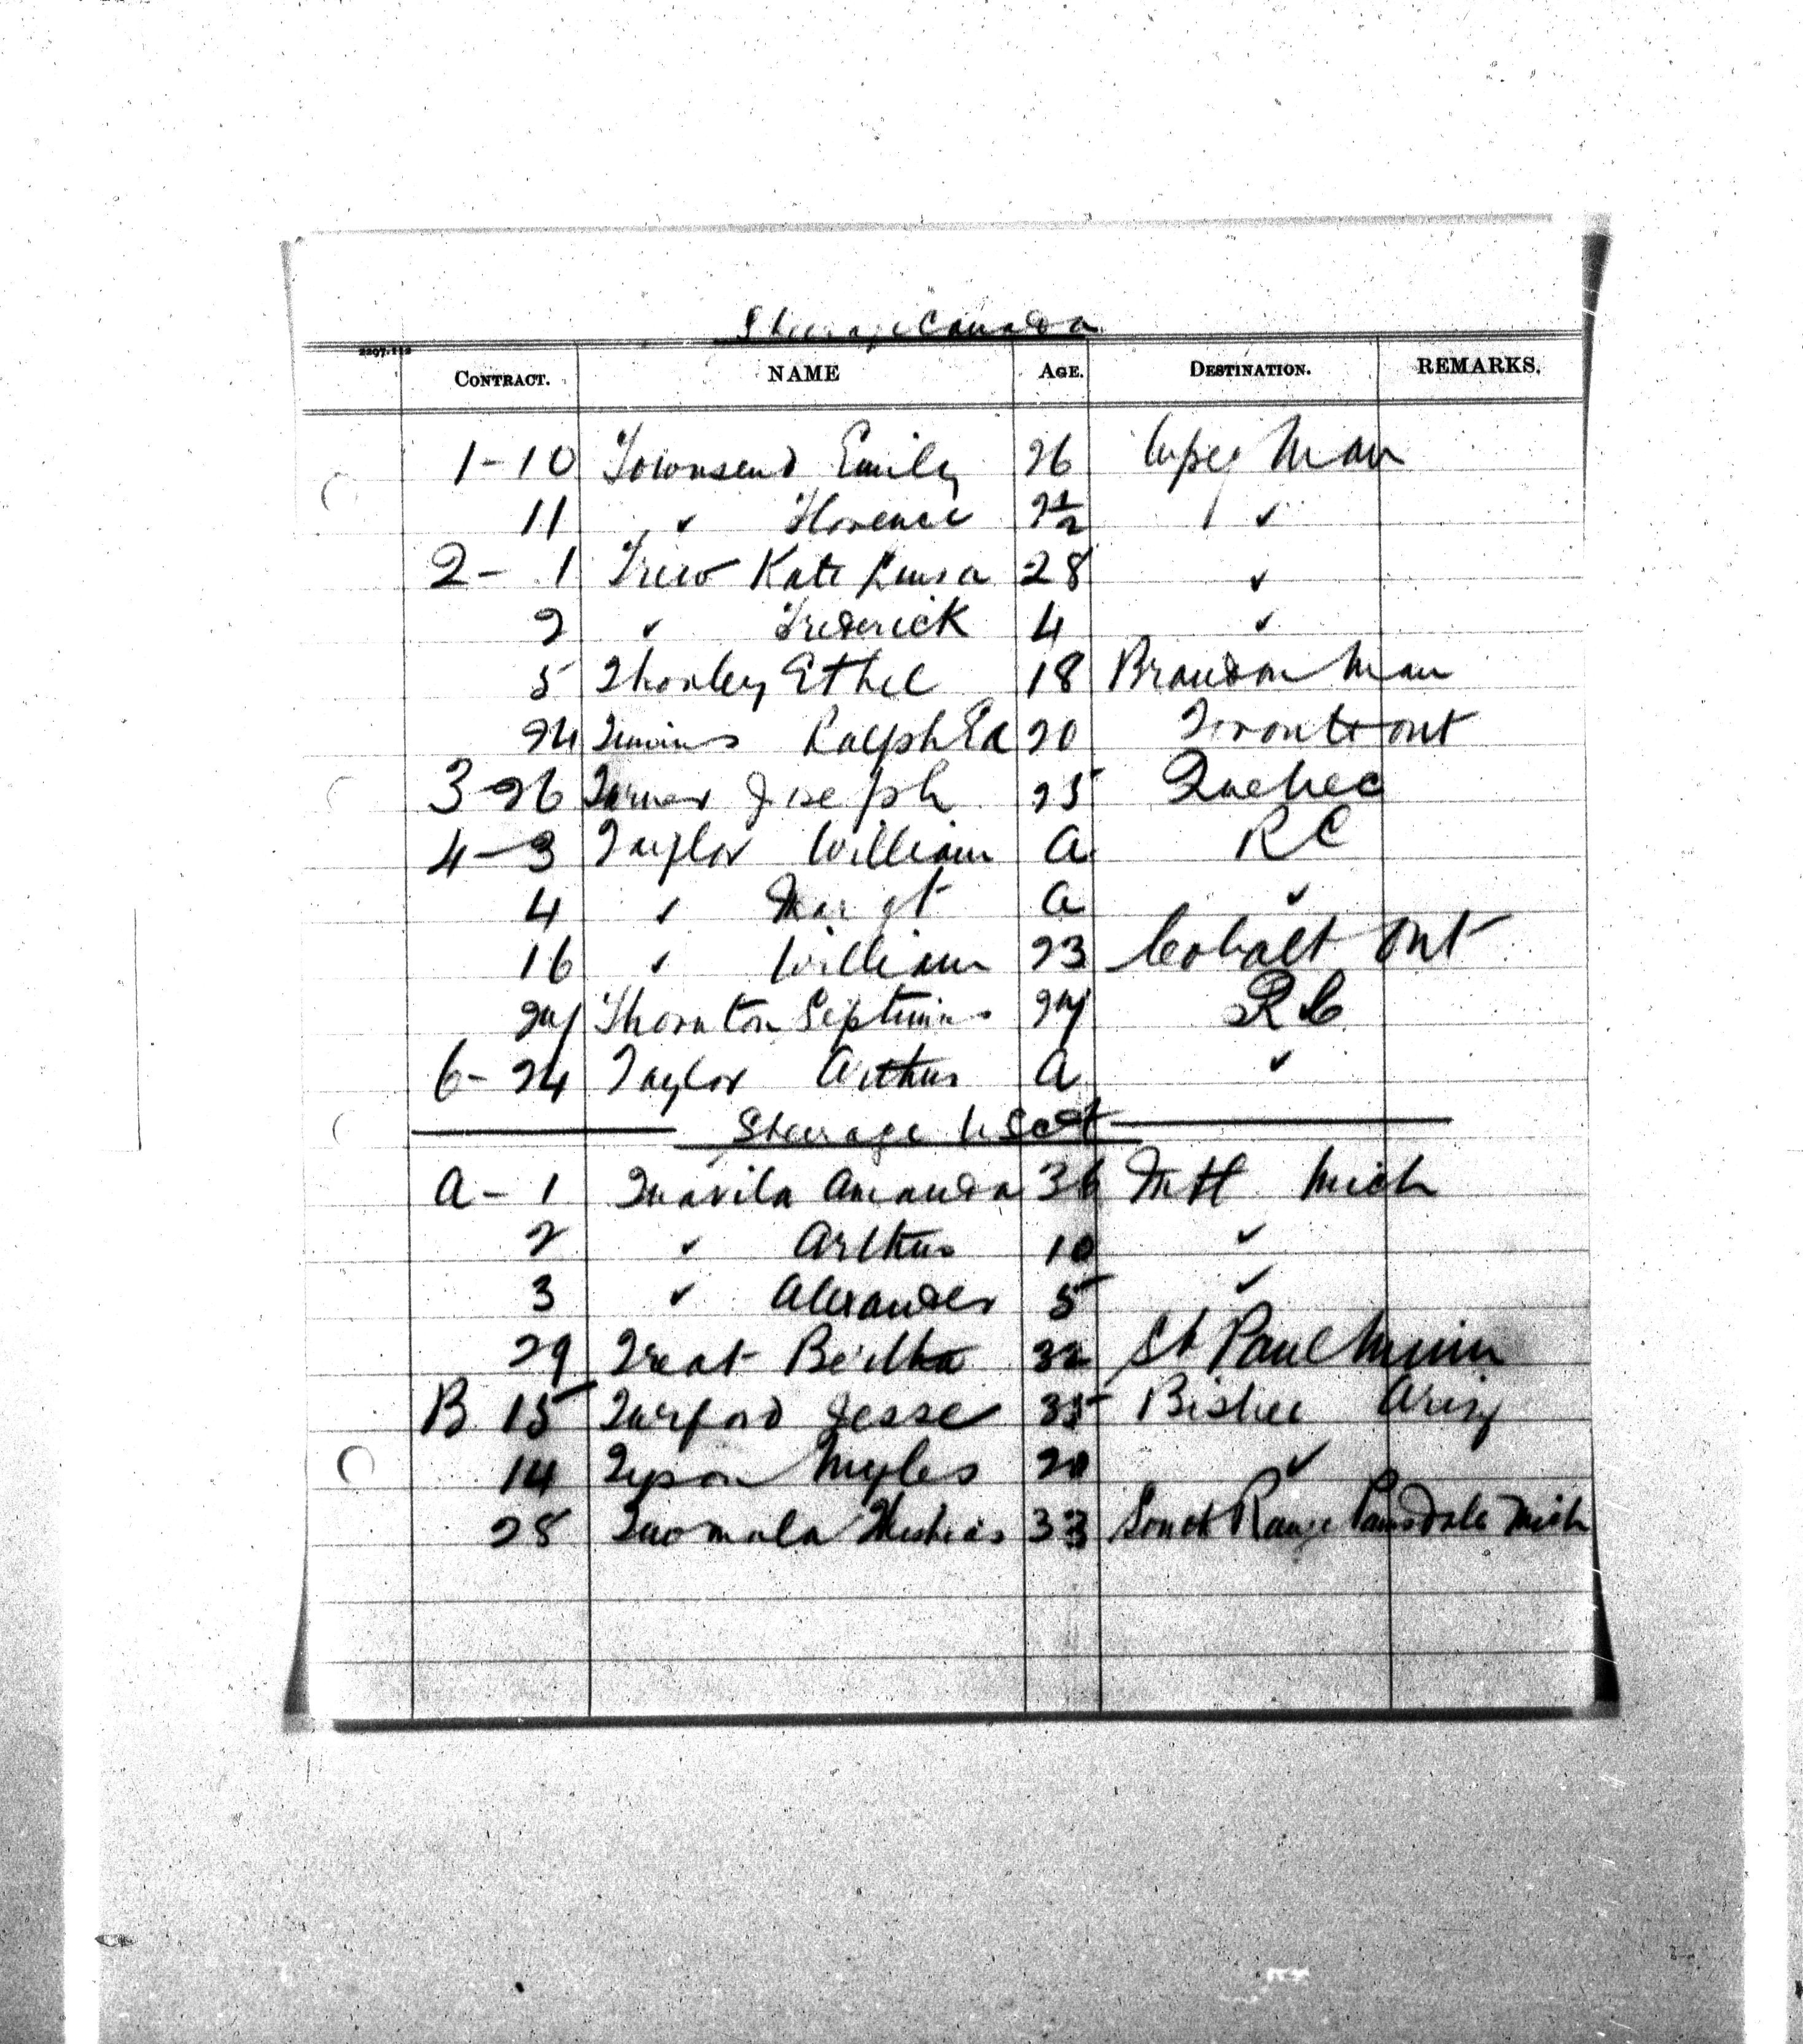 Steerage Canada
2297.112
CONTRACT. NAME AGE. DESTINATION. REMARKS.
1-10 Townsend Emily 26 Wpeg Man
11 ✓ Florence 2½ ✓
2-1 Trew Kate Louisa 28 ✓
2 ✓ Frederick 4 ✓
5 Thorley Ethel 18 Brandon Man
24 Ralph Ed 20 Toronto Ont
3-26 Turner Joseph 25 Quebec
4-3 Taylor William A
4 ✓ Margt A ✓
16 ✓ William 23 Cobalt Ont
27 Thornton Septimus 27
6-24 Taylor Arthur A ✓
Steerage
A-1 Amanda 36 Mich
2 ✓ Arthur 10 ✓
3 ✓ Alexander 5 ✓
29 Treat Bertha 32 St Paul Minn
B 15 Jesse 35 Bisbee Ariz
14 Tyson Myles 20 ✓
28 Tuomala 33 South Range Mich